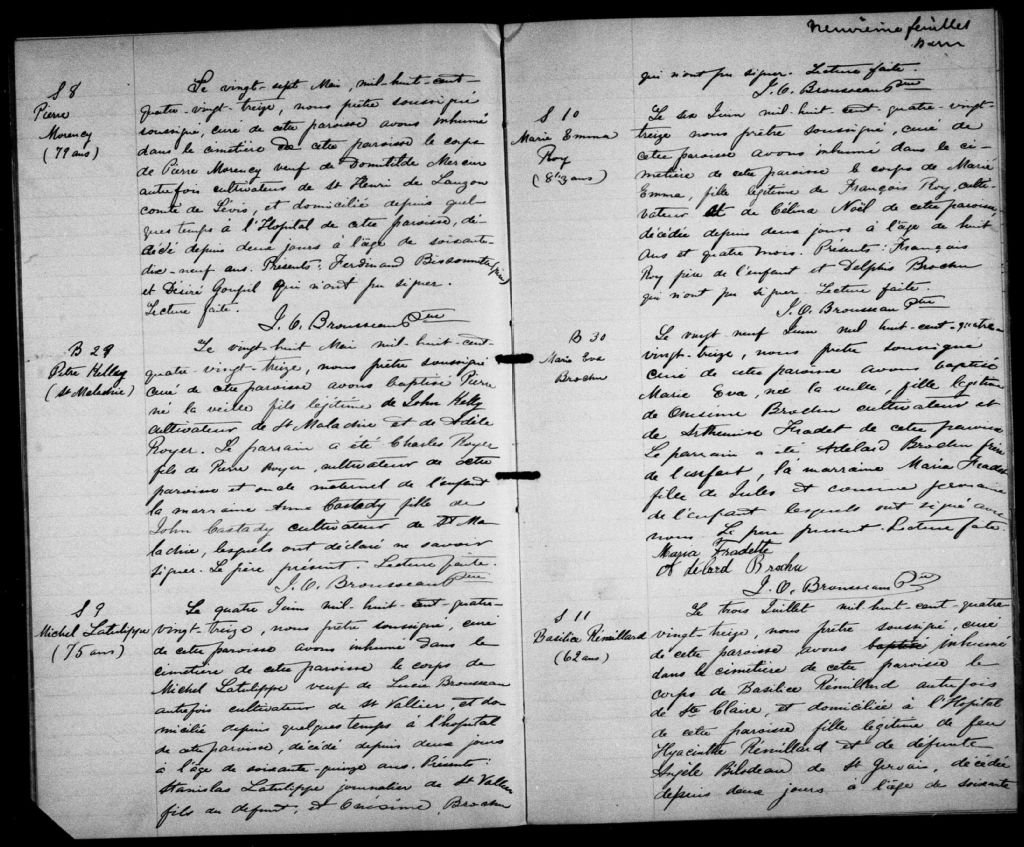 S 8
Pierre
Morency
(79 ans)
Le vingt-sept Mai, mil-huit-cent-
quatre-vingt-treize, nous prêtre soussigné
soussigné, curé de cette paroisse avons inhumé
dans le cimetière de cette paroisse le corps
de Pierre Morency veuf de Domitilde Mercier
autrefois cultivateur de St Henri de Lauzon
comté de Lévis, et domicilié depuis quel-
ques temps à l'Hopital de cette paroisse, dé-
cédé depuis deux jours à l'âge de soixante-
dix-neuf ans. Présents: Ferdinand Bissonnette
et Désiré Goupil qui n'ont pu signer.
Lecture faite.
J. O. Brousseau Ptre
B 29
Pitre Kelley
(St Malachie)
Le vingt-huit Mai mil-huit-cent-
quatre-vingt-treize, nous prêtre soussigné
curé de cette paroisse avons baptisé Pierre
né la veille fils légitime de John Kelly
cultivateur de St Malachie et de Adèle
Royer. Le parrain a été Charles Royer
fils de Pierre Royer, cultivateur de cette
paroisse et oncle maternel de l'enfant
la marraine Anne Castady fille de
John Castady cultivateur de St Ma-
lachie, lesquels ont déclaré ne savoir
signer. Le père présent. Lecture faite.
J. O. Brousseau Ptre
S 9
Michel Latulippe
(75 ans)
Le quatre Juin mil-huit-cent-quatre-
vingt-treize, nous prêtre soussigné, curé
de cette paroisse avons inhumé dans le
cimetière de cette paroisse le corps de
Michel Latulippe veuf de Lucie Brousseau
autrefois cultivateur de St Vallier, et do-
micilié depuis quelques temps à l'hopital
de cette paroisse, décédé depuis deux jours
à l'âge de soixante-quinze ans. Présents:
Stanislas Latulippe journalier de St Vallier
fils du défunt, et Onésime Brochu
Neuvième feuillet
qui n'ont pu signer. Lecture faite.
J. O. Brousseau Ptre
S 10
Marie Emma
Roy
Le six Juin mil-huit-cent-quatre-vingt-
treize nous prêtre soussigné, curé de
cette paroisse avons inhumé dans le ci-
metière de cette paroisse le corps de Marie
Emma, fille légitime de François Roy, culti-
vateur et de Célina Noël de cette paroisse,
décédée depuis deux jours à l'âge de huit
ans et quatre mois. Présents: François
Roy père de l'enfant et Delphis Brochu
qui n'ont pu signer. Lecture faite.
J. O. Brousseau Ptre
B 30
Marie Eva
Brochu
Le vingt neuf Juin mil huit-cent-quatre-
vingt-treize, nous prêtre soussigné
curé de cette paroisse avons baptisé
Marie Eva, née la veille, fille légitime
de Onésime Brochu cultivateur et
de Arthémise Fradet de cette paroisse
Le parrain a été Adélard Brochu frère
de l'enfant, la marraine Maria Fradet
fille de Jules et cousine germaine
de l'enfant lesquels ont signé avec
nous. Le père présent. Lecture faite.
Maria Fradette
Adélard Brochu
J. O. Brousseau Ptre
S 11
Basilice Rémillard
(62 ans)
Le trois Juillet mil-huit-cent-quatre-
vingt-treize, nous prêtre soussigné, curé
de cette paroisse avons baptisé inhumé
dans le cimetière de cette paroisse le
corps de Basilice Rémillard autrefois
de Ste Claire, et domiciliée à l'Hopital
de cette paroisse fille légitime de feu
Hyacinthe Rémillard et de défunte
Angèle Bilodeau de St Gervais, décédée
depuis deux jours à l'âge de soixante